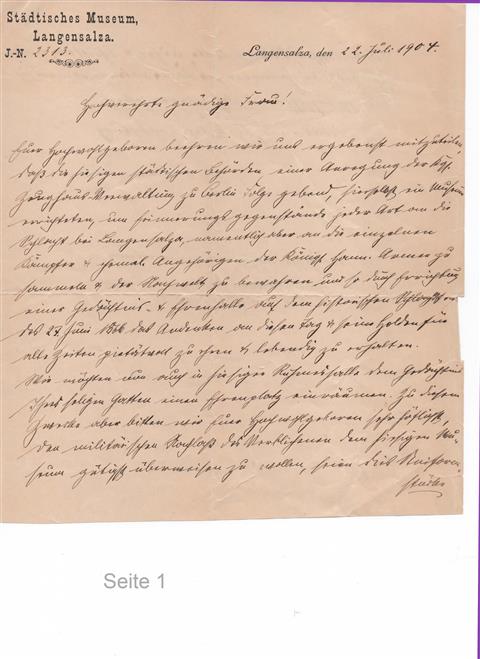 Städtisches Museum,
Langensalza.
J.-N. 2313.
Langensalza, den 22. Juli 1904.
Hochverehrte gnädige Frau!
Euer Hochwohlgeboren beehren wir uns ergebenst mitzuteilen,
daß die hiesigen städtischen Behörden einer Anregung der Kgl.
Zeughaus-Verwaltung zu Berlin Folge gebend, hierselbst ein Museum
errichteten, um Erinnerungsgegenstände jeder Art an die
Schlacht bei Langensalza, namentlich aber an die einzelnen
Kämpfer & ehemal. Angehörigen der Königl. hann. Armee zu
sammeln & der Nachwelt zu bewahren und so durch Errichtung
einer Gedächtnis- & Ehrenhalle auf dem historischen
des 27. Juni 1866 das Andenken an diesen Tag & seine Helden für
alle Zeiten pietätvoll zu ehren & lebendig zu erhalten.
Wir möchten nun auch in hiesiger Ruhmeshalle dem Gedächtnis
Ihres seligen Gatten einen Ehrenplatz einräumen. Zu diesem
Zwecke aber bitten wir Euer Hochwohlgeboren sehr höflichst,
den militärischen Nachlaß des Verblichenen dem hiesigen Mu-
seum gütigst überweisen zu wollen, seien dies Uniform-
stücke
Seite 1